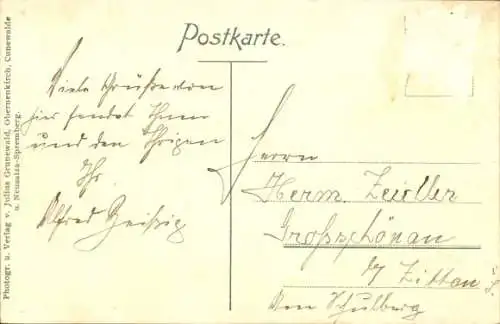 Postkarte.
Viele Grüße von
hier sendet Ihnen
und den Ihrigen
Ihr
Alfred
Herrn
Herm. Zeidler
Grossschönau
b/ Zittau i. S.
Am Schulberg
Photogr. u. Verlag v. Julius Grunewald, Oberneukirch, Cunewalde
u. Neusalza-Spremberg.